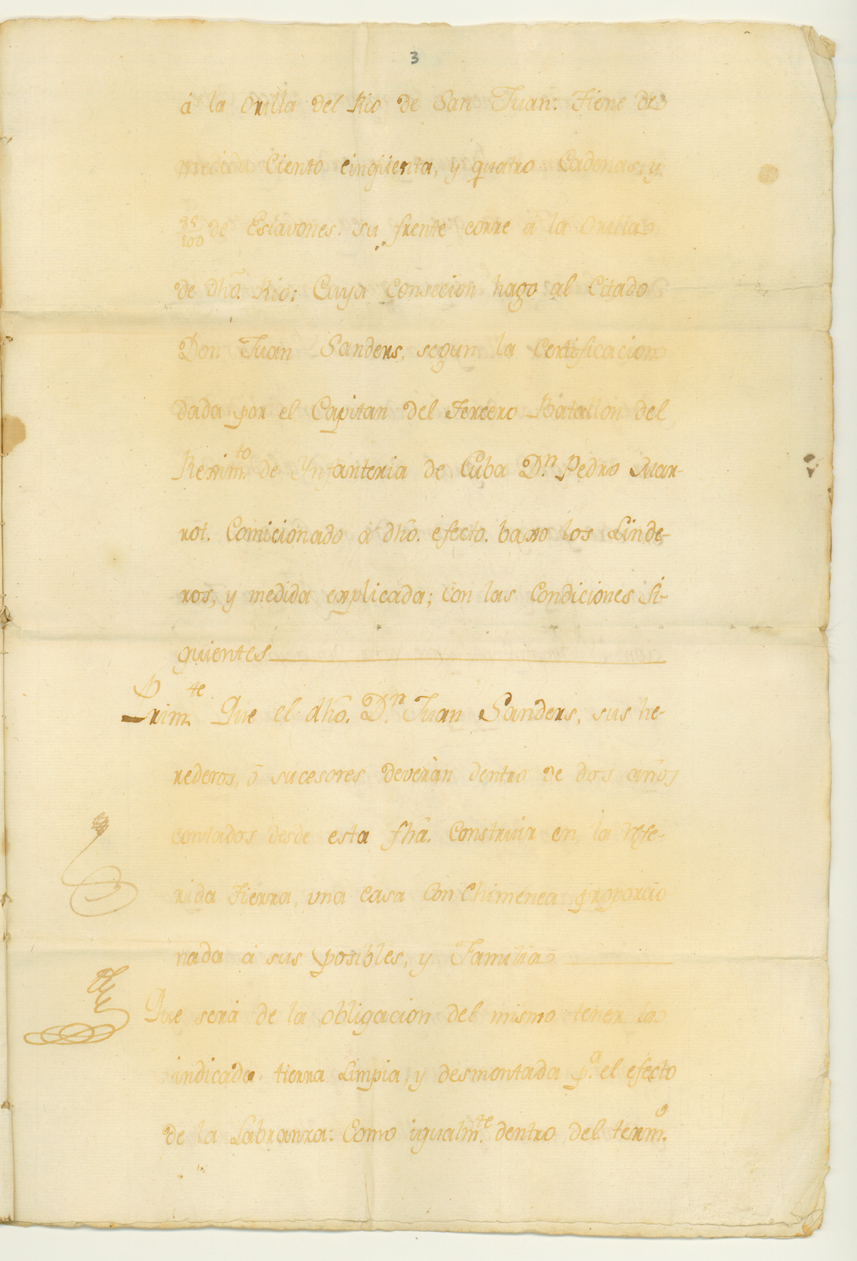 3
á la Orilla del Rio de San Juan: Tiene de
medida Ciento cinqüenta, y quatro Cadenas, y
25/100 de Eslavones. su frente corre â la Orilla
de dho. Rio: Caya Consecion hago al Citado
Don Juan Sanders, segun la Certificacion
dada por el Capitan del Tercero Batallon del
Reximto. de Ynfanteria de Cuba Dn. Pedro Mar-
rot. Comicionado a dho. efecto. baxo los Linde-
ros, y medida explicada; con las Condiciones Si-
guientes
Primte. Que el dho. Dn. Juan Sanders, sus he-
rederos, ô sucesores deverán dentro de dos años
contados desde esta fha. Construir en la refe-
rida Tierra, una casa con Chimenea proporcio
nada á sus posibles, y Familia
Que será de la obligacion del mismo tener la
indicada tierra Limpia, y desmontada pa. el efecto
de la Labranza: Como igualmte. dentro del termo.